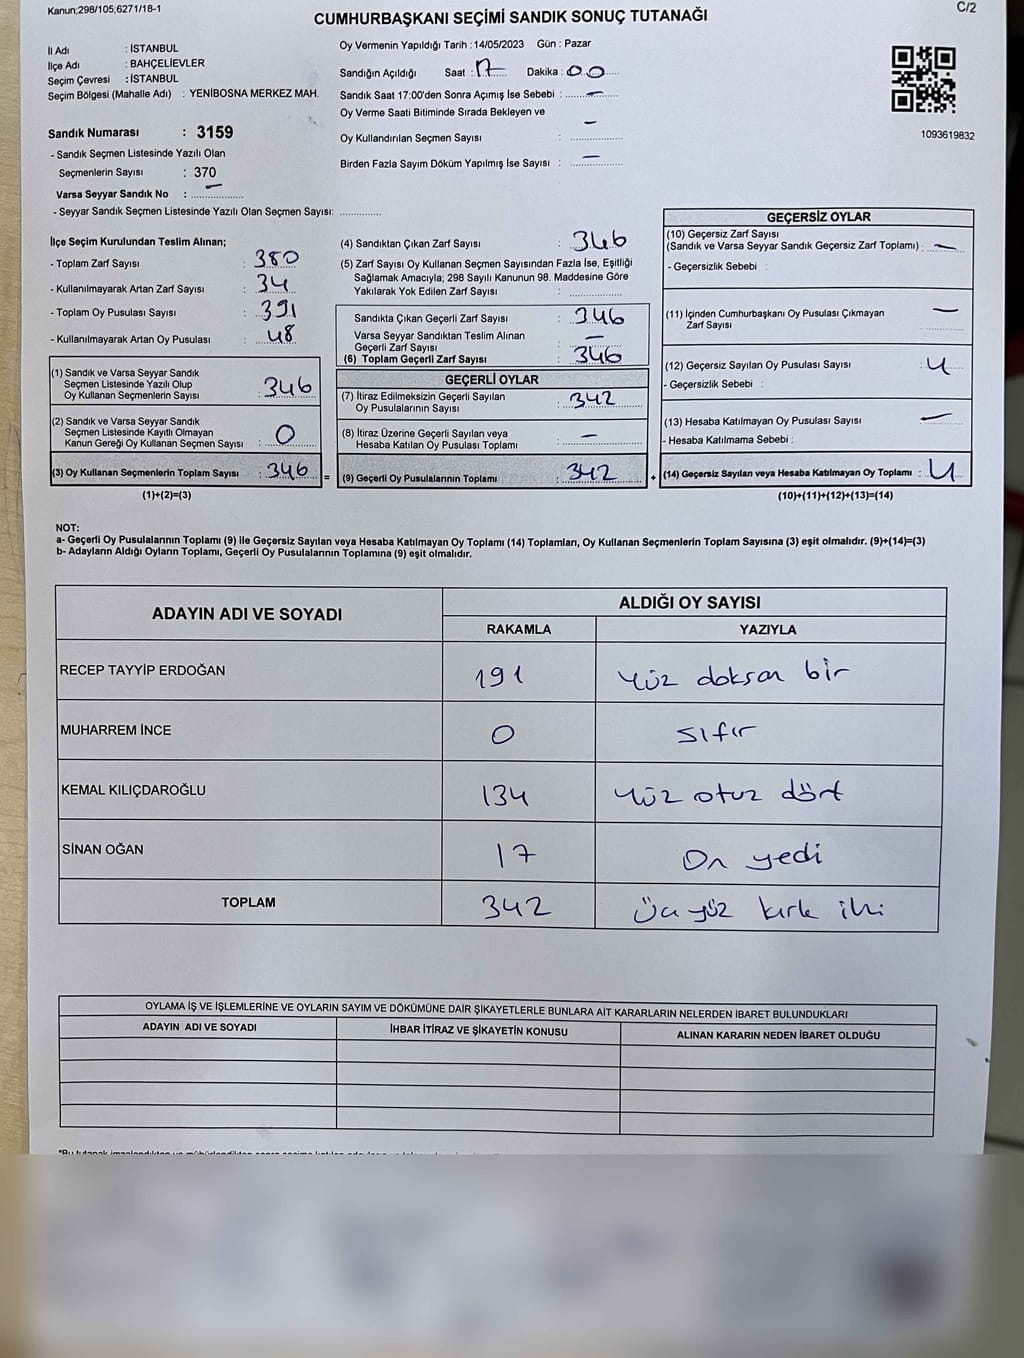 Kanun;298/105;6271/18-1
C/2
CUMHURBAŞKANI SEÇİMİ SANDIK SONUÇ TUTANAĞI
İl Adı : İSTANBUL
İlçe Adı : BAHÇELİEVLER
Seçim Çevresi : İSTANBUL
Seçim Bölgesi (Mahalle Adı) : YENİBOSNA MERKEZ MAH.
Sandık Numarası : 3159
- Sandık Seçmen Listesinde Yazılı Olan
Seçmenlerin Sayısı : 370
Varsa Seyyar Sandık No : –
- Seyyar Sandık Seçmen Listesinde Yazılı Olan Seçmen Sayısı: ..............
Oy Vermenin Yapıldığı Tarih : 14/05/2023 Gün : Pazar
Sandığın Açıldığı Saat : 17 Dakika : 00
Sandık Saat 17:00'den Sonra Açımış İse Sebebi : –
Oy Verme Saati Bitiminde Sırada Bekleyen ve
Oy Kullandırılan Seçmen Sayısı : –
Birden Fazla Sayım Döküm Yapılmış İse Sayısı : –
1093619832
İlçe Seçim Kurulundan Teslim Alınan;
- Toplam Zarf Sayısı : 380
- Kullanılmayarak Artan Zarf Sayısı : 34
- Toplam Oy Pusulası Sayısı : 391
- Kullanılmayarak Artan Oy Pusulası : 48
(1) Sandık ve Varsa Seyyar Sandık
Seçmen Listesinde Yazılı Olup
Oy Kullanan Seçmenlerin Sayısı : 346
(2) Sandık ve Varsa Seyyar Sandık
Seçmen Listesinde Kayıtlı Olmayan
Kanun Gereği Oy Kullanan Seçmen Sayısı : 0
(3) Oy Kullanan Seçmenlerin Toplam Sayısı : 346
(1)+(2)=(3)
(4) Sandıktan Çıkan Zarf Sayısı : 346
(5) Zarf Sayısı Oy Kullanan Seçmen Sayısından Fazla İse, Eşitliği
Sağlamak Amacıyla; 298 Sayılı Kanunun 98. Maddesine Göre
Yakılarak Yok Edilen Zarf Sayısı : ..............
Sandıkta Çıkan Geçerli Zarf Sayısı : 346
Varsa Seyyar Sandıktan Teslim Alınan
Geçerli Zarf Sayısı : –
(6) Toplam Geçerli Zarf Sayısı : 346
GEÇERLİ OYLAR
(7) İtiraz Edilmeksizin Geçerli Sayılan
Oy Pusulalarının Sayısı : 342
(8) İtiraz Üzerine Geçerli Sayılan veya
Hesaba Katılan Oy Pusulası Toplamı : –
= (9) Geçerli Oy Pusulalarının Toplamı : 342
GEÇERSİZ OYLAR
(10) Geçersiz Zarf Sayısı
(Sandık ve Varsa Seyyar Sandık Geçersiz Zarf Toplamı) : –
- Geçersizlik Sebebi :
(11) İçinden Cumhurbaşkanı Oy Pusulası Çıkmayan
Zarf Sayısı : –
(12) Geçersiz Sayılan Oy Pusulası Sayısı : 4
- Geçersizlik Sebebi :
(13) Hesaba Katılmayan Oy Pusulası Sayısı : –
- Hesaba Katılmama Sebebi :
+ (14) Geçersiz Sayılan veya Hesaba Katılmayan Oy Toplamı : 4
(10)+(11)+(12)+(13)=(14)
NOT:
a- Geçerli Oy Pusulalarının Toplamı (9) ile Geçersiz Sayılan veya Hesaba Katılmayan Oy Toplamı (14) Toplamları, Oy Kullanan Seçmenlerin Toplam Sayısına (3) eşit olmalıdır. (9)+(14)=(3)
b- Adayların Aldığı Oyların Toplamı, Geçerli Oy Pusulalarının Toplamına (9) eşit olmalıdır.
ADAYIN ADI VE SOYADI
ALDIĞI OY SAYISI
RAKAMLA YAZIYLA
RECEP TAYYİP ERDOĞAN 191 Yüz doksan bir
MUHARREM İNCE 0 sıfır
KEMAL KILIÇDAROĞLU 134 Yüz otuz dört
SİNAN OĞAN 17 On yedi
TOPLAM 342 Üç yüz kırk iki
OYLAMA İŞ VE İŞLEMLERİNE VE OYLARIN SAYIM VE DÖKÜMÜNE DAİR ŞİKAYETLERLE BUNLARA AİT KARARLARIN NELERDEN İBARET BULUNDUKLARI
ADAYIN ADI VE SOYADI İHBAR İTİRAZ VE ŞİKAYETİN KONUSU ALINAN KARARIN NEDEN İBARET OLDUĞU